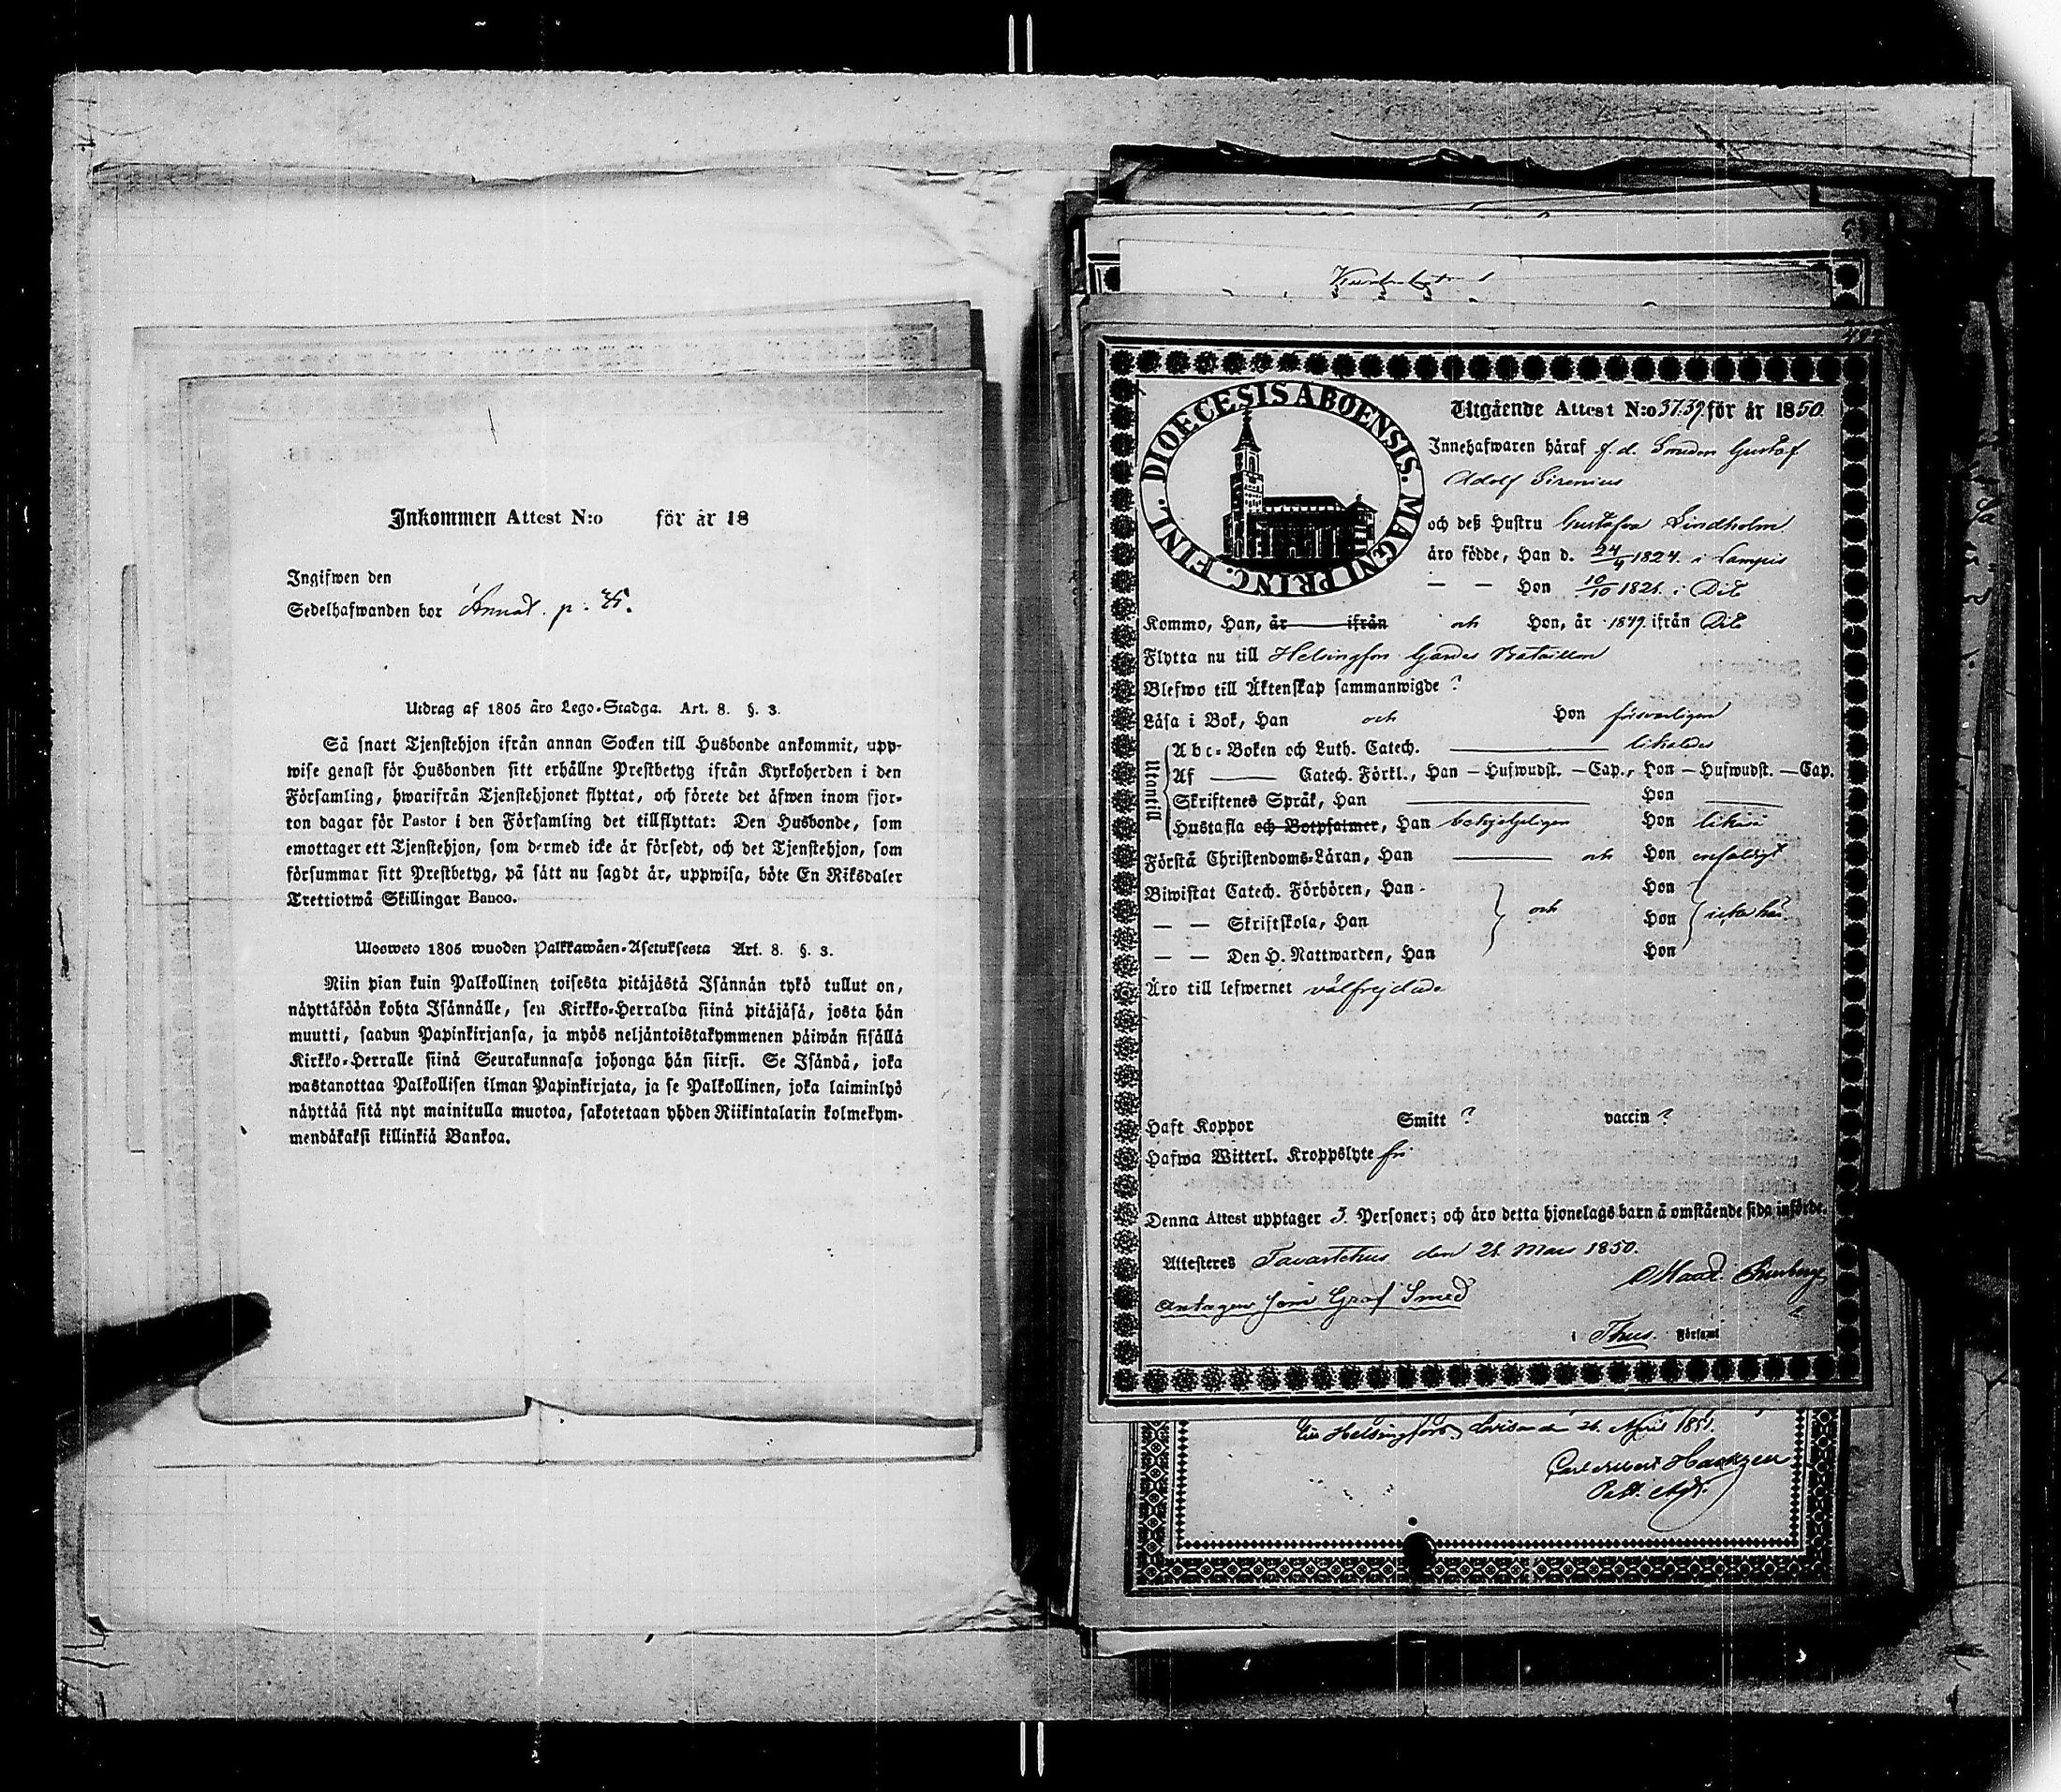 Inkommen Attest N:o för år 18
Ingifwen den
Sedelhafwanden bor Annat. p. 35.
Utdrag af 1805 åro Lego-Stadga. Art. 8. §. 3.
Så snart Tjenstehjon ifrån annan Socken till Husbonde ankommit, upp-
wise genast för Husbonden sitt erhållne Prestbetyg ifrån Kyrkoherden i den
Församling, hwarifrån Tjenstehjonet flyttat, och förete det åfwen inom fjor-
ton dagar för Pastor i den Församling det tillflyttat: Den Husbonde, som
emottager ett Tjenstehjon, som dermed icke år försedt, och det Tjenstehjon, som
försummar sitt Prestbetyg, på sått nu sagdt år, uppwisa, böte En Riksdaler
Trettiotwå Skillingar Banco.
Ulosweto 1805 wuoden Palkkawåen-Asetuksesta Art. 8. §. 3.
Niin pian kuin Palkollinen toisesta pitåjåstå Isånnån tykö tullut on,
nåyttåköön kohta Isånnålle, sen Kirkko-Herralda siinå pitåjåså, josta hån
muutti, saadun Papinkirjansa, ja myös neljåntoistakymmenen påiwån sisållå
Kirkko-Herralle siinå Seurakunnasa johonga hån siirsi. Se Isåndå, joka
wastanottaa Palkollisen ilman Papinkirjata, ja se Palkollinen, joka laiminlyö
nåyttåå sitå nyt mainitulla muotoa, sakotetaan yhden Riikintalarin kolmekym-
mendåkaksi killinkiå Bankoa.
DIOECESIS ABOENSIS. MAGNI PRINC. FINL.
Utgående Attest N:o 37.39. för år 1850.
Innehafwaren håraf f.d. Smeden Gustaf
Adolf Sirenius
och deß Hustru Gustafva Lindholm
åro födde, Han d. 24/4 1824. i Lampis
— — Hon 10/10 1821. i Dit
Kommo, Han, år ifrån och Hon, år 1849. ifrån Dit
Flytta nu till Helsingfors Gardes Bataillon
Blefwo till Åktenskap sammanwigde ?
Låsa i Bok, Han och Hon försvarligen
Utantill
Abc-Boken och Luth. Catech. likaledes
Af Catech. Förkl., Han — Hufwudst. — Cap., Hon — Hufwudst. — Cap.
Skriftenes Språk, Han Hon
Hustafla och Botpsalmer, Han behjelpligen Hon likså
Förstå Christendoms-Låran, Han och Hon enfaldigt
Biwistat Catech. Förhören, Han Hon
— — Skriftskola, Han och Hon
— — Den H. Nattwarden, Han Hon
Åro till lefwernet välfrejdade
Haft Koppor Smitt ? vaccin ?
Hafwa Witterl. Kroppslyte fri
Denna Attest upptager 5. Personer; och åro detta hjonelags barn å omstående sida införde.
Attesteres Tavastehus den 28 Mars 1850.
Antagen som Grof Smed
i Thus. Församl
till Helsingfors, Lovisa den 26. April 1851.